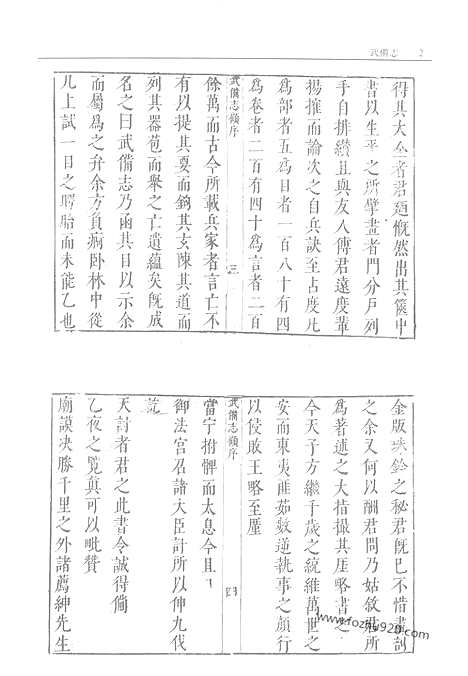 武備志 2
得其大全者君廼慨然出其篋中
書以生平之所擘畫者門分戶列
手自排纘且與友人傅君遠度輩
揚搉而論次之自兵訣至占度凡
爲部者五爲目者一百八十有四
爲卷者二百有四十爲言者二百
武備志 序 三
餘萬而古今所載兵家者言亡不
有以提其要而鉤其玄陳其道而
列其器苞而舉之亡遺蘊矣旣成
名之曰武備志乃函其目以示余
而屬爲之弁余方負痾卧林中從
几上試一目之愕胎而未能乙也
金版 鈐之秘君旣已不惜盡
之余又何以酬君問乃姑敘 所
爲著述之大指撮其厓略書之
今天子方纘千歲之統維萬世之
安而東夷匪茹數逆執事之顏行
以侵敗王略至厪
武備志 序 四
當宁拊髀而太息今且
御法宮召諸大臣計所以伸九伐
荒
天討者君之此書令誠得徜
乙夜之覽眞可以毗贊
廟謨决勝千里之外諸薦紳先生